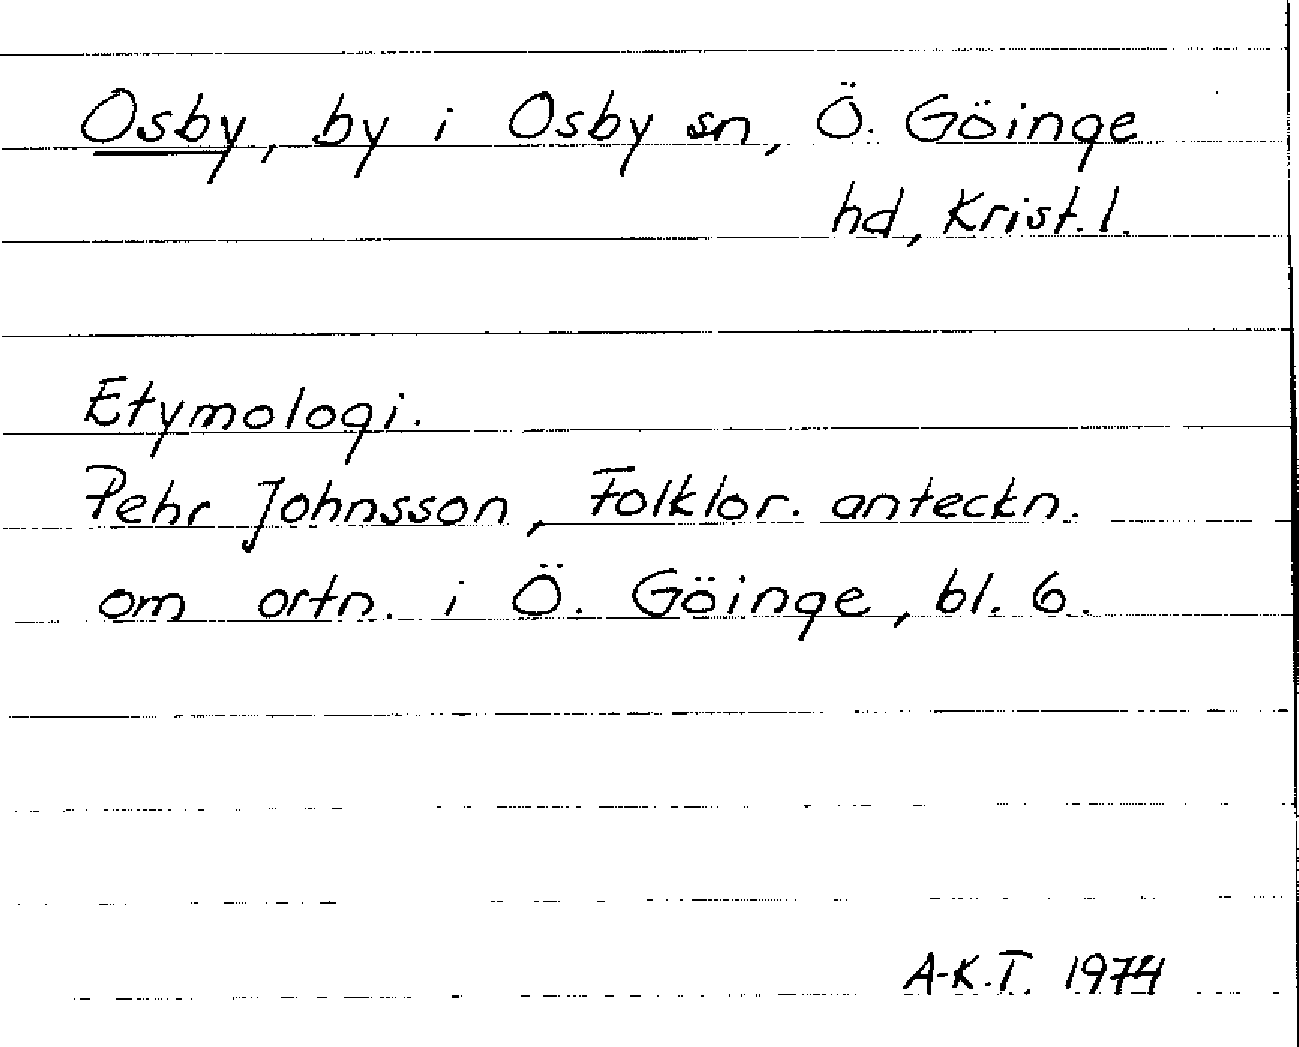 Osby, by i Osby sn, Ö. Göinge
hd, Krist. l.
Etymologi.
Pehr Johnsson, Folklor. anteckn.
om ortn. i Ö. Göinge, bl. 6.
A-K.T. 1974